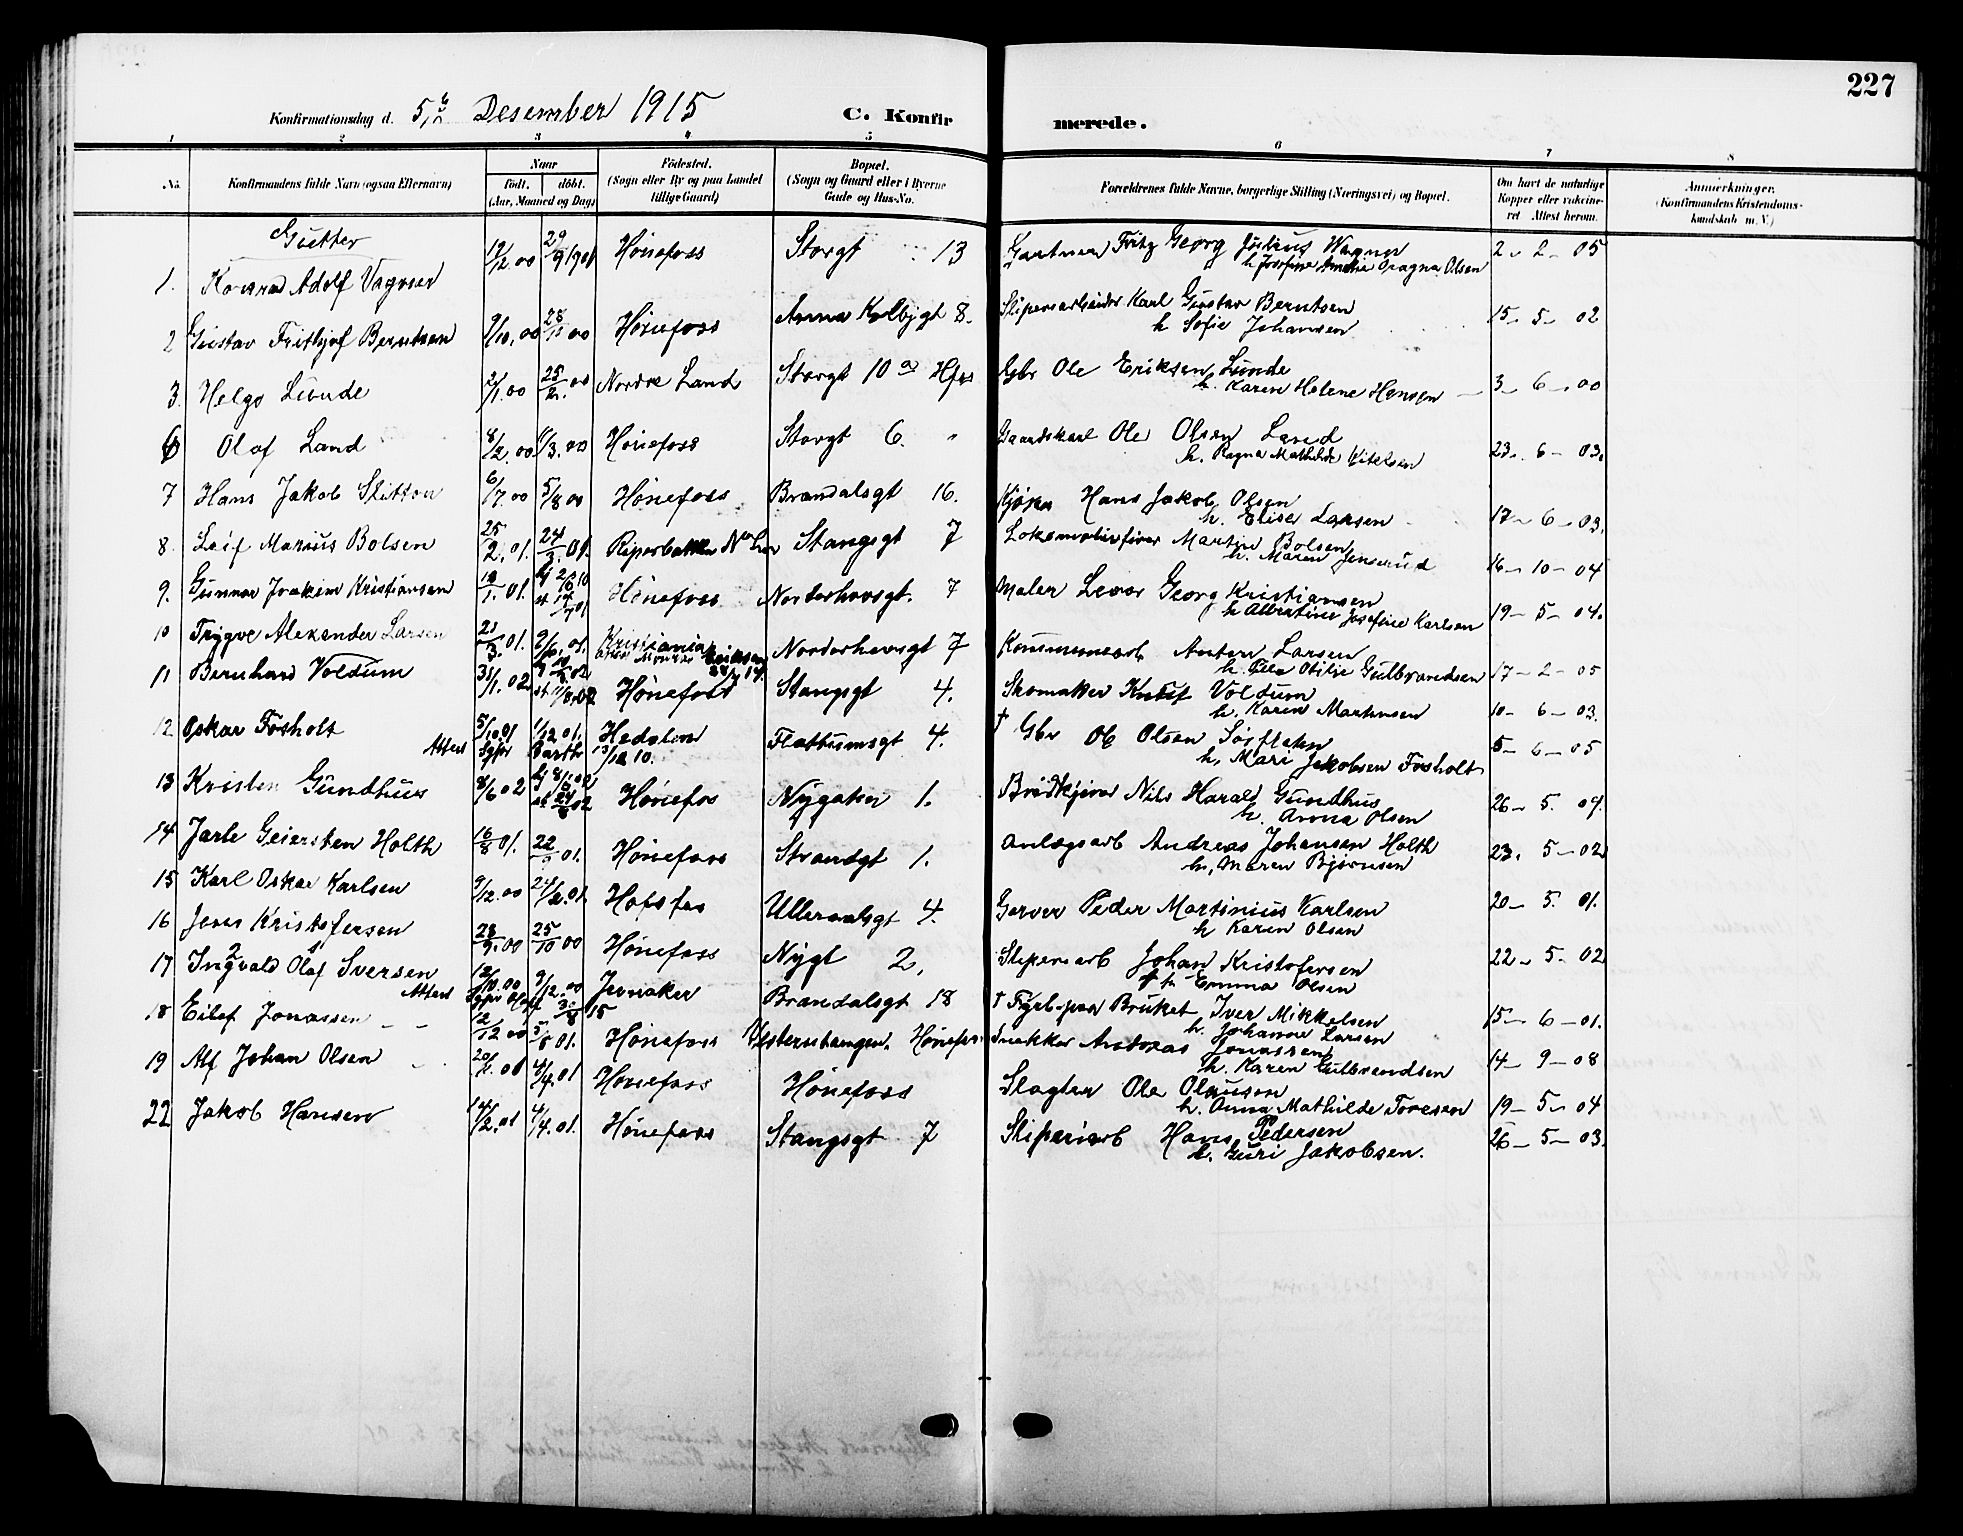 227
Konfirmationsdag d. 5 Desember 1915 C. Konfirmerede.
1 2 3 4 5 6 7 8
No. Konfirmandens fulde Navn (ogsaa Efternavn) Naar født. døbt. (Aar, Maaned og Dag) Fødested. (Sogn eller By og paa Landet tillige Gaard) Bopæl. (Sogn og Gaard eller i Byerne Gade og Hus-No. Forældrenes fulde Navne, borgerlige Stilling (Næringsvei) og Bopæl. Om havt de naturlige Kopper eller vakcineret. Attest herom. Anmærkninger. (Konfirmandens Kristendomskundskab m. V.)
Gutter
1. Konrad Adolf Vagner 12/12 00 29/9 1901 Hønefoss Storgt 13 Gartner Fritz Georg Julius Wagner 2 - 2 - 05
h. Josefine Amalie Dragna Olsen
2 Gustav Fritjof Berntsen 9/10.00 28/10 00 Hønefoss Anna Kolbjgt 8. Sliperiarbeider Karl Gustav Berntsen 15 - 5 - 02
h Sofie Johansen
3. Helge Lunde 2/1.00 25/2.00 Nordre Land Storgt 10 a Hfos Gbr Ole Eriksen Lunde 3 - 6 - 00
h. Karen Helene Hansen
6 Olaf Land 8/2.00 /3.00 Hønefoss Storgt 6. " Gaardskarl Ole Olsen Land 23 - 6 - 03.
h. Ragna Mathilde Kitelsen
7 Hans Jakob Slitton 6/7.00 5/8 00 Hønefoss Brandalsgt 16. Kjøpm Hans Jakob Olsen 17 - 6 - 03.
h. Elise Larsen
8. Leif Marius Bolsen 25/2.01. 24/3.01. Stangsgt 7 Lokomotivfører Martin Bolsen 16 - 10 - 04
h. Maren Jenserud
9. Gunnar Joakim Kristiansen 19/1.01. Hønefoss Norderhovsgt. 7 Maler Levor Georg Kristiansen 19 - 5 - 04.
h Albertine Josefine Karlsen
10 Trygve Alexander Larsen 21/3.01. 2/6.01. Kristiania Norderhovsgt 7 Kommunearb Anton Larsen 17 - 2 - 05
h. Otilie Gulbrandsen
11 Bernhard Voldum 31/1.02 Hønefoss Stangsgt 4. Skomaker Voldum 10 - 6 - 03.
h. Karen Martinsen
12 Oskar Fosholt 5/10 01 1/12 01. Hedalen Flattumsgt 4. † Gbr Ole Olsen 5 - 6 - 05
Attest 13/12 10. h. Mari Jakobsen Fosholt
13 Kristen Gundhus 8/6 02 Hønefos Nygaten 1. Brødkjører Nils Harald Gundhus 26 - 5. 04.
h. Anna Olsen
14 Jarle Geiersten Holth 16/8 01. 22/ 01. Hønefoss Strandgt 1. Anlægsarb Andreas Johansen Holth 23. 5 - 02
h, Maren Bjørnsen
15 Karl Oskar Karlsen 9/12.00 24/2.01. Hofsfos Ulleraalsgt 4. Garver Peder Martinius Karlsen 20 - 5. 01.
h Karen Olsen
16 Jens Kristofersen 23/9.00 25/10 00 Hønefoss Nygt 2. Sliperiarb Johan Kristofersen 22 - 5 - 02
† h. Emma Olsen
17 Ingvald Olaf Iversen 12/10.00 9/12.00 Jevnaker Brandalsgt 18 † Fyrb. paa Bruket Iver Mikkelsen 15 - 6 - 01.
Attest h. Johanne Larsen
18 Eilef Jonassen 12/12 00 5/5 01. Hønefoss Vesterntangen. Hønefos Snekker Andreas Jonassen 14 - 9 - 08
h. Karen Gulbrandsen
19 Alf Johan Olsen 20/2.01 4/4.01 Hønefoss Hønefoss Slagter Ole Olausen 19 - 5 - 04
h. Anna Mathilde Toresen
22 Jakob Hansen 14/2.01 4/4.01. Hønefoss Stangsgt 7 Sliperiarb Hans Pedersen 26 - 5 - 03.
h. Guri Jakobsen.